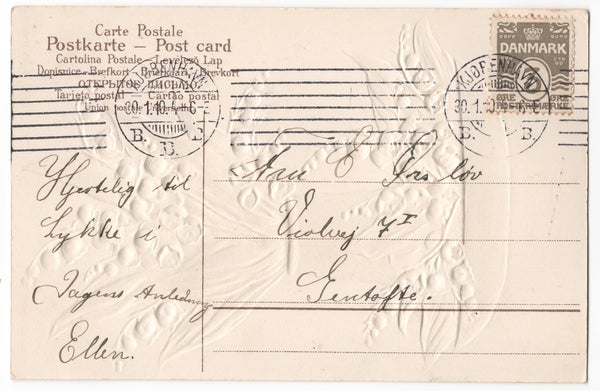 Carte Postale
Postkarte — Post card
Cartolina Postale - Levelezö Lap
Dopisnice - Brefkort - Briefkaart - Brevkort
ОТКРЫТОЕ ПИСЬМО
Tarjeta postal — Cartão postal
Union postale
KJØBENHAVN
30.1.10. 4-6 E
B. B. B.
DANMARK
ØRE ØRE
POSTFRIMÆRKE
KJØBENHAVN
30.1.10
B. B.
Hjertelig til
Lykke i
Dagens Anledning
Ellen.
Fru E
Violvej 7 I
Gentofte.